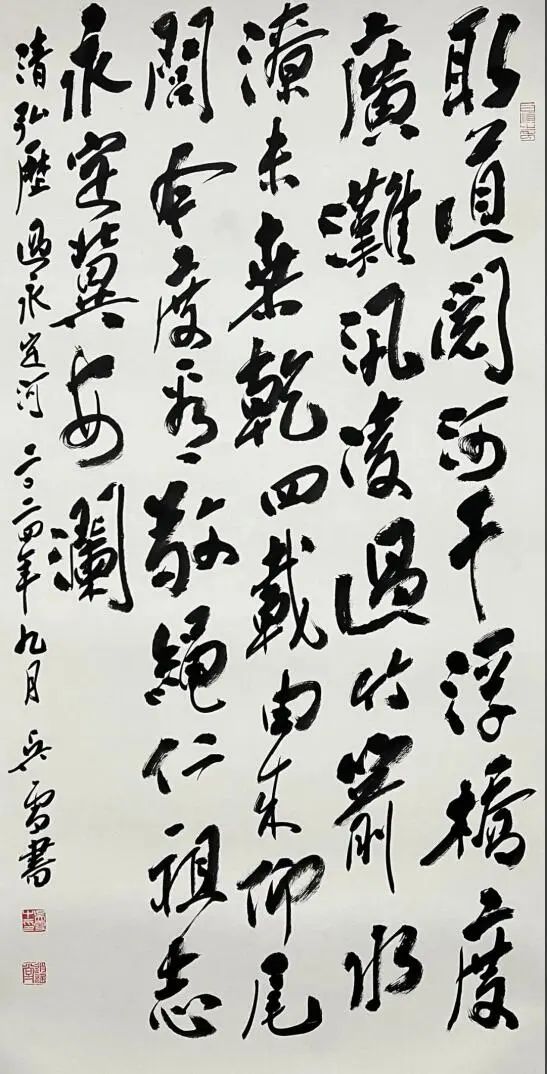 取道閱河干浮橋度
廣灘汛凌過竹箭水
潦未桑乾四載由来仰尾
閭今度看敬繩仁祖志
永定冀安瀾
清弘歷過永定河 二〇二四年九月 吳雪書